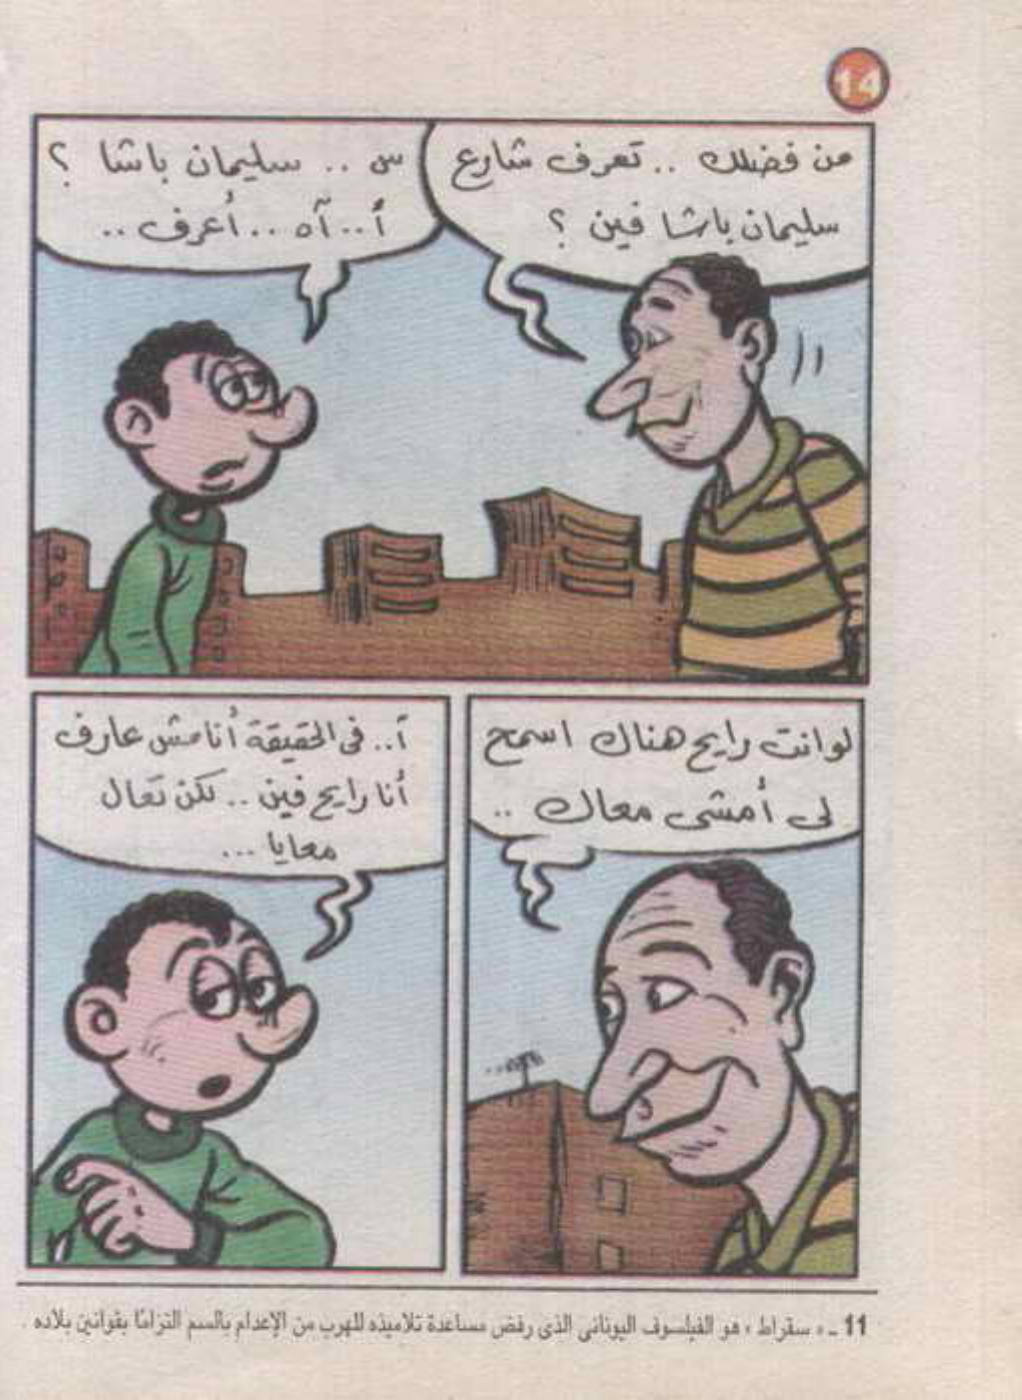 14
من فضلك .. تعرف شارع
سليمان باشا فين ؟
س .. سليمان باشا ؟
أ .. آه .. أعرف ..
لو انت رايح هناك اسمح
لى أمشى معاك ..
آ.. فى الحقيقة أنا مش عارف
أنا رايح فين .. لكن تعال
معايا ...
11 ـ « سقراط » هو الفيلسوف اليونانى الذى رفض مساعدة تلاميذه للهرب من الإعدام بالسم التزامًا بقوانين بلاده .